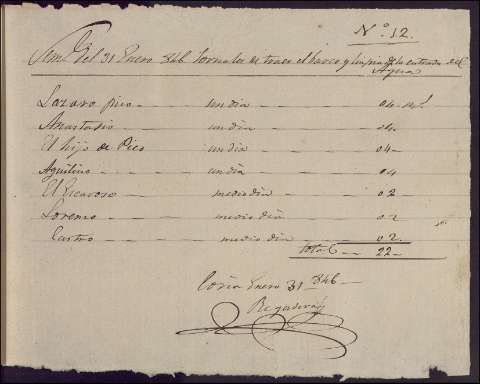 Nº 12.
Semª del 31 Enero 846 Jornales de traer el barco y limpiar la entrada del
Agua
Lazaro pico un dia 04. rs
Anastasio un dia 04.
El hijo de Pico un dia 04
Agustino un dia 04
El medio dia 02
Lorenzo medio dia 02
Castro medio dia 02.
total 22
Coria Enero 31 846